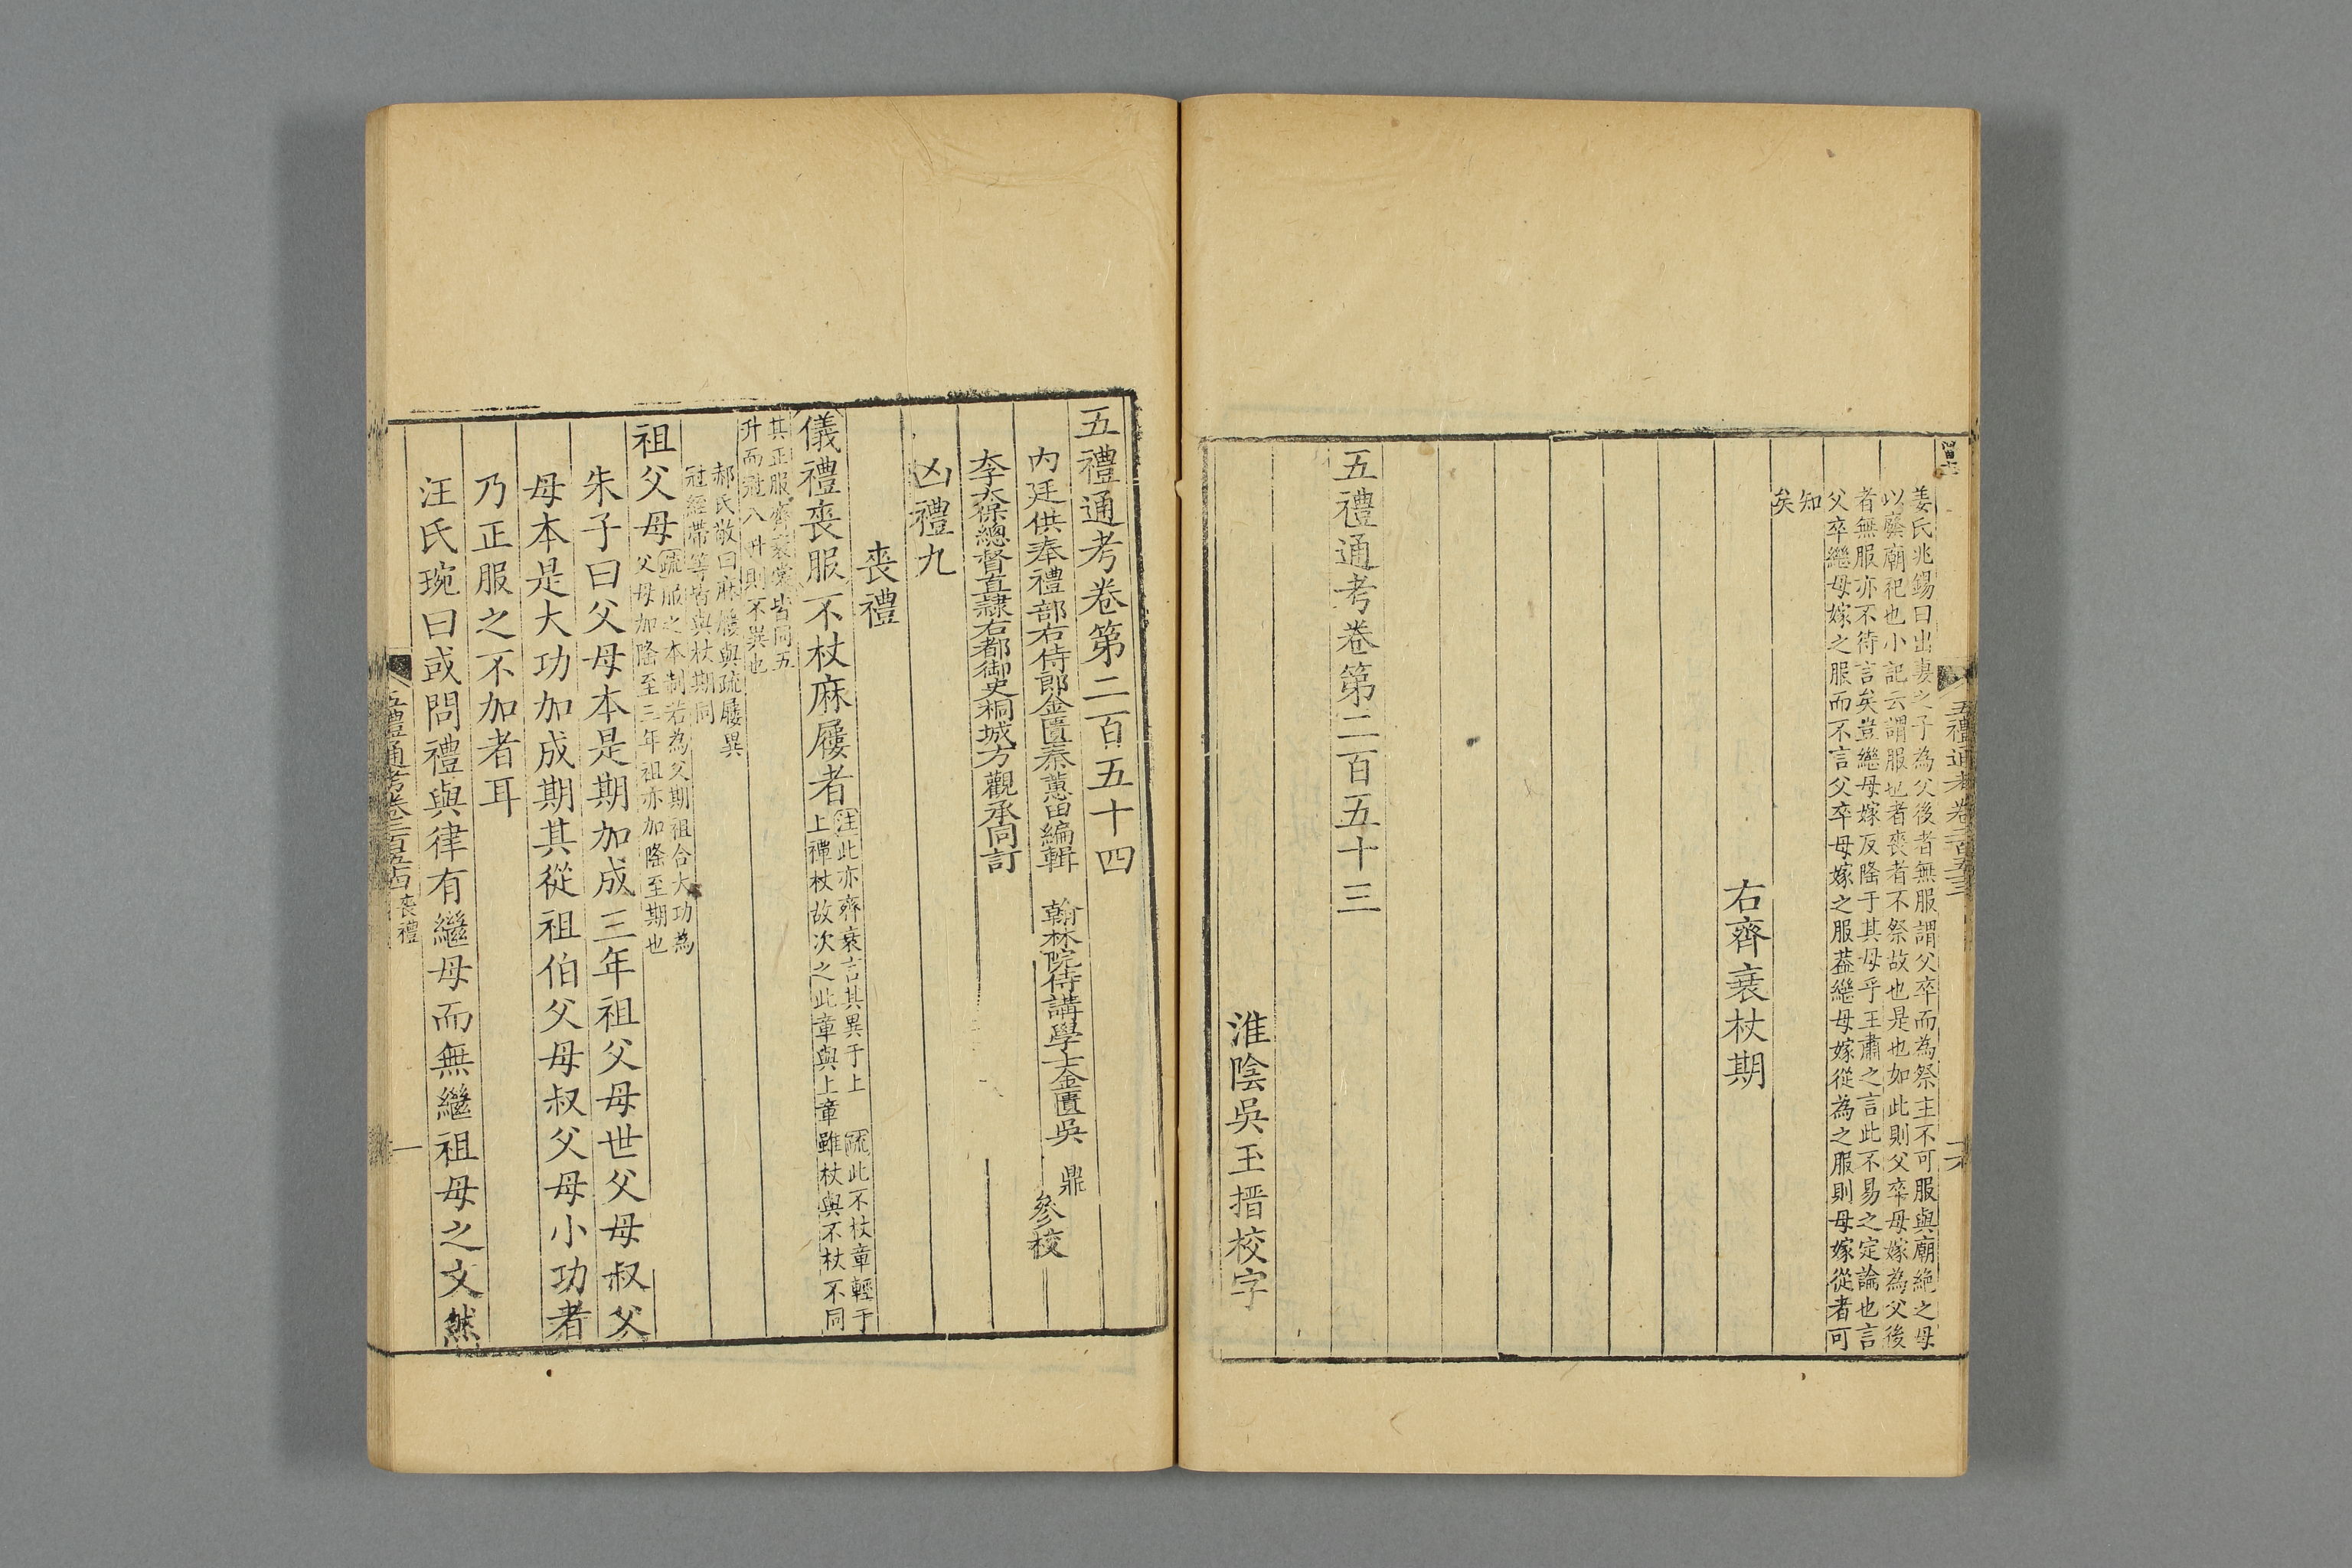 姜氏兆錫曰出妻之子為父後者無服謂父卒而為祭主不可服與廟絶之母
以廢廟祀也小記云謂服也者喪者不祭故也是也如此則父卒母嫁為父後
者無服亦不待言矣豈繼母嫁反隆于其母乎王肅之言此不易之定論也言
父卒繼母嫁之服而不言父卒母嫁之服葢繼母嫁從為之服則母嫁從者可
知
矣
右齊衰杖期
五禮通考卷第二百五十三
淮陰吳玉搢校字
五禮通考卷二百五三
五禮通考卷第二百五十四
內廷供奉禮部右侍郎金匱秦蕙田編輯 翰林院侍講學士金匱吳 鼎
李太保總督直隸右都御史桐城方觀承同訂
參校
凶禮九
喪禮
儀禮喪服不杖麻屨者
注此亦齊衰言其異于上 疏此不杖章輕于
上禫杖故次之此章與上章雖杖與不杖不同
其正服齊衰裳皆同五
升而冠八升則不異也
郝氏敬曰麻屨與疏屨異
冠絰帶等皆與杖期同
祖父母
疏服之本制若為父期祖合大功為
父母加隆至三年祖亦加隆至期也
朱子曰父母本是期加成三年祖父母世父母叔父
母本是大功加成期其從祖伯父母叔父母小功者
乃正服之不加者耳
汪氏琬曰或問禮與律有繼母而無繼祖母之文然
五禮通考卷二百五古 喪禮
一